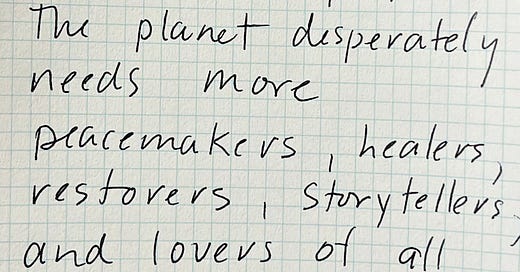 The planet desperately
needs more
peacemakers, healers,
restorers, storytellers,
and lovers of all